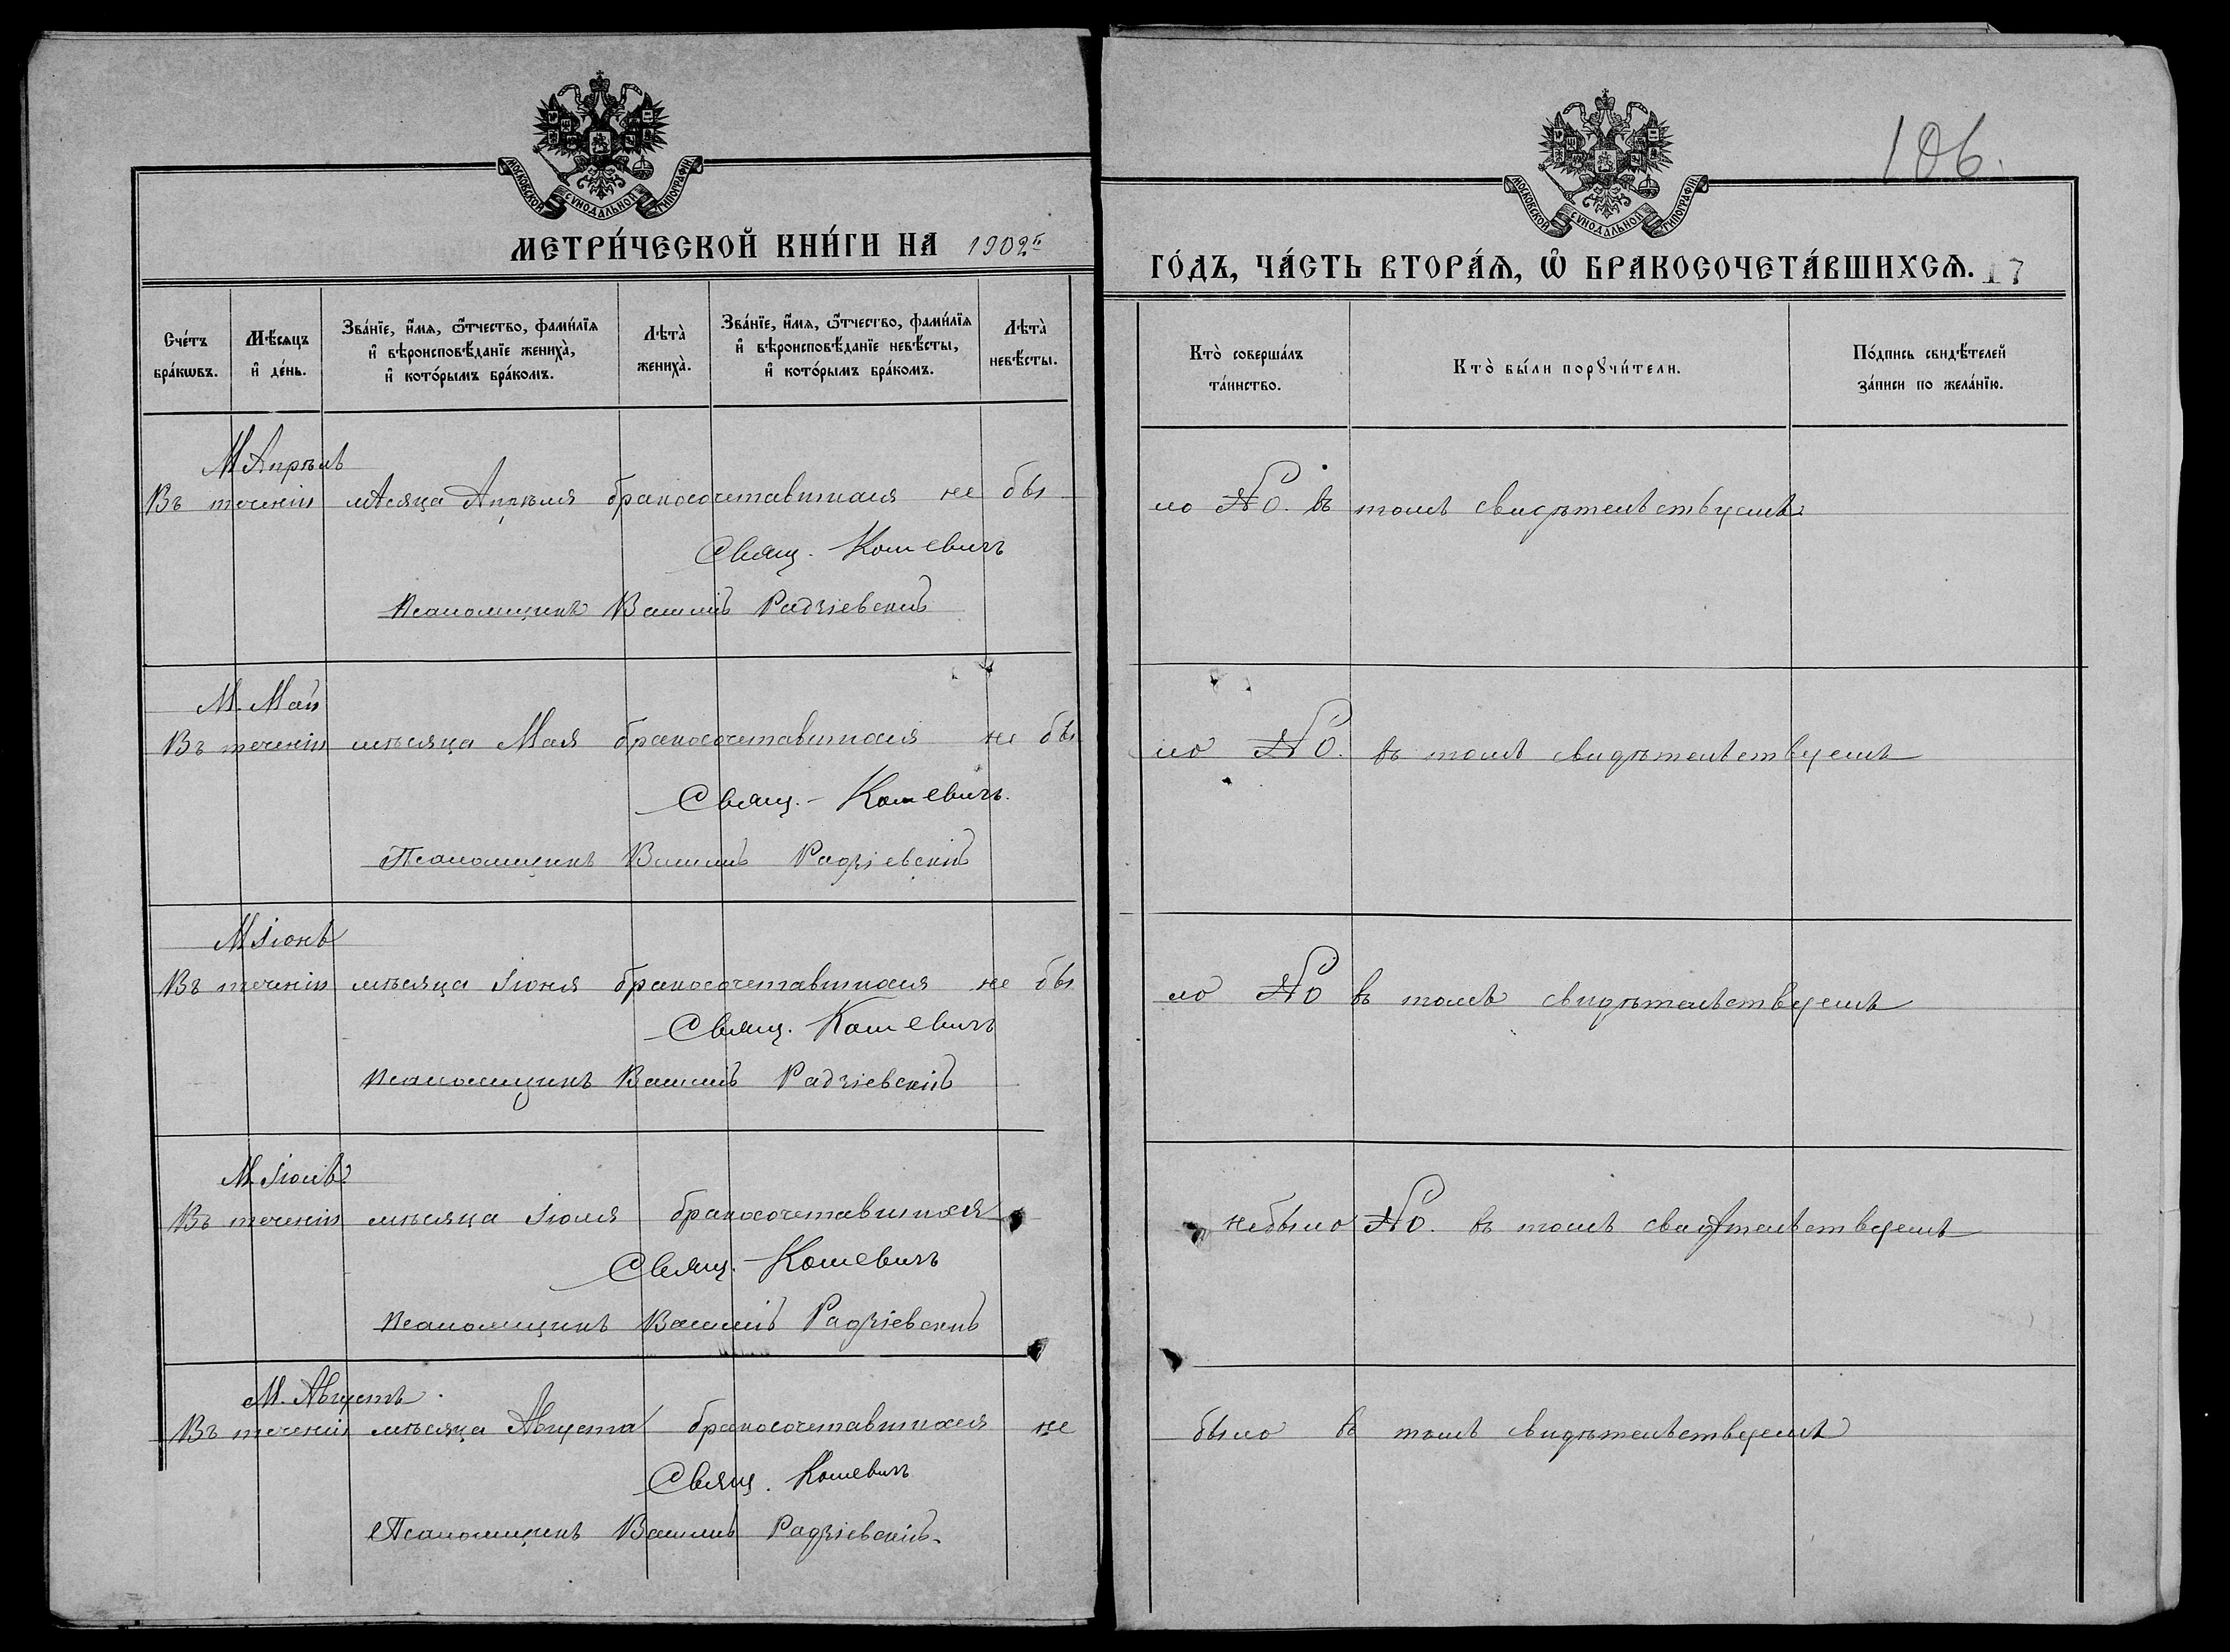 МОСКОВСКОЙ СУНОДАЛЬНОЙ ТИПОГРАФІИ
МЕТРИ́ЧЕСКОЙ КНИ́ГИ НА 1902й
Сче́тъ бра́кѡвъ.
Мѣ́сяцъ и҆ де́нь.
Зва́нїе, и҆́мѧ, ѻ҆́тчество, фамѝлїѧ и҆ вѣроисповѣ́данїе женихà, и҆ кото́рымъ бра́комъ.
Лѣта̀ женихà.
Зва́нїе, и҆́мѧ, ѻ҆́тчество, фамѝлїѧ и҆ вѣроисповѣ́данїе невѣ́сты, и҆ кото́рымъ бра́комъ.
Лѣта̀ невѣ́сты.
М Апрѣль
Въ теченіи мѣсяца Апрѣля бракосочетавшихся не бы
Свящ. Кошевичъ
Псаломщикъ Василій Радзіевскій
М. Май
Въ теченіи мѣсяца Мая бракосочетавшихся не бы
Свящ. - Кошевичъ.
Псаломщикъ Василій Радзіевскій
М Іюнь
Въ теченіи мѣсяца Іюня бракосочетавшихся не бы
Свящ. Кошевичъ
Псаломщикъ Василій Радзіевскій
М. Іюль
Въ теченіи мѣсяца Іюля бракосочетавшихся
Свящ. - Кошевичъ
Псаломщикъ Василій Радзіевскій
М. Августъ.
Въ теченіи мѣсяца Августа бракосочетавшихся не
Свящ. Кошевичъ
Псаломщикъ Василій Радзіевскій.
106.
МОСКОВСКОЙ СУНОДАЛЬНОЙ ТИПОГРАФІИ.
ГО́ДЪ, ЧА́СТЬ ВТОРА́Ѧ, Ѽ БРАКОСОЧЕТА́ВШИХСѦ. 17
Кто̀ соверша́лъ та́инство.
Кто̀ бы́ли порꙋчи́тели.
По́дпись свидѣ́телей за́писи по жела́нїю.
ло №. въ томъ свидѣтельствуемъ
ло №. въ томъ свидѣтельствуемъ
ло № въ томъ свидѣтельствуемъ
не было №. въ томъ свидѣтельствуемъ
было въ томъ свидѣтельствуемъ